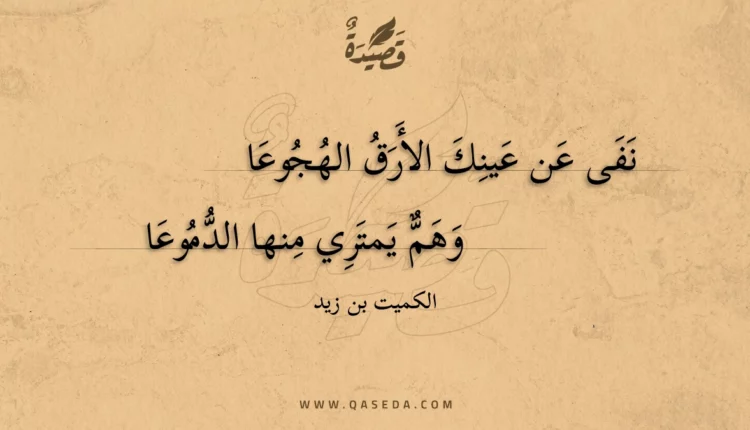 قَصِيدَةٌ
نَفَى عَن عَينِكَ الأَرَقُ الهُجُوعَا
وَهَمٌّ يَمتَرِي مِنها الدُّمُوعَا
الكميت بن زيد
WWW.QASEDA.COM